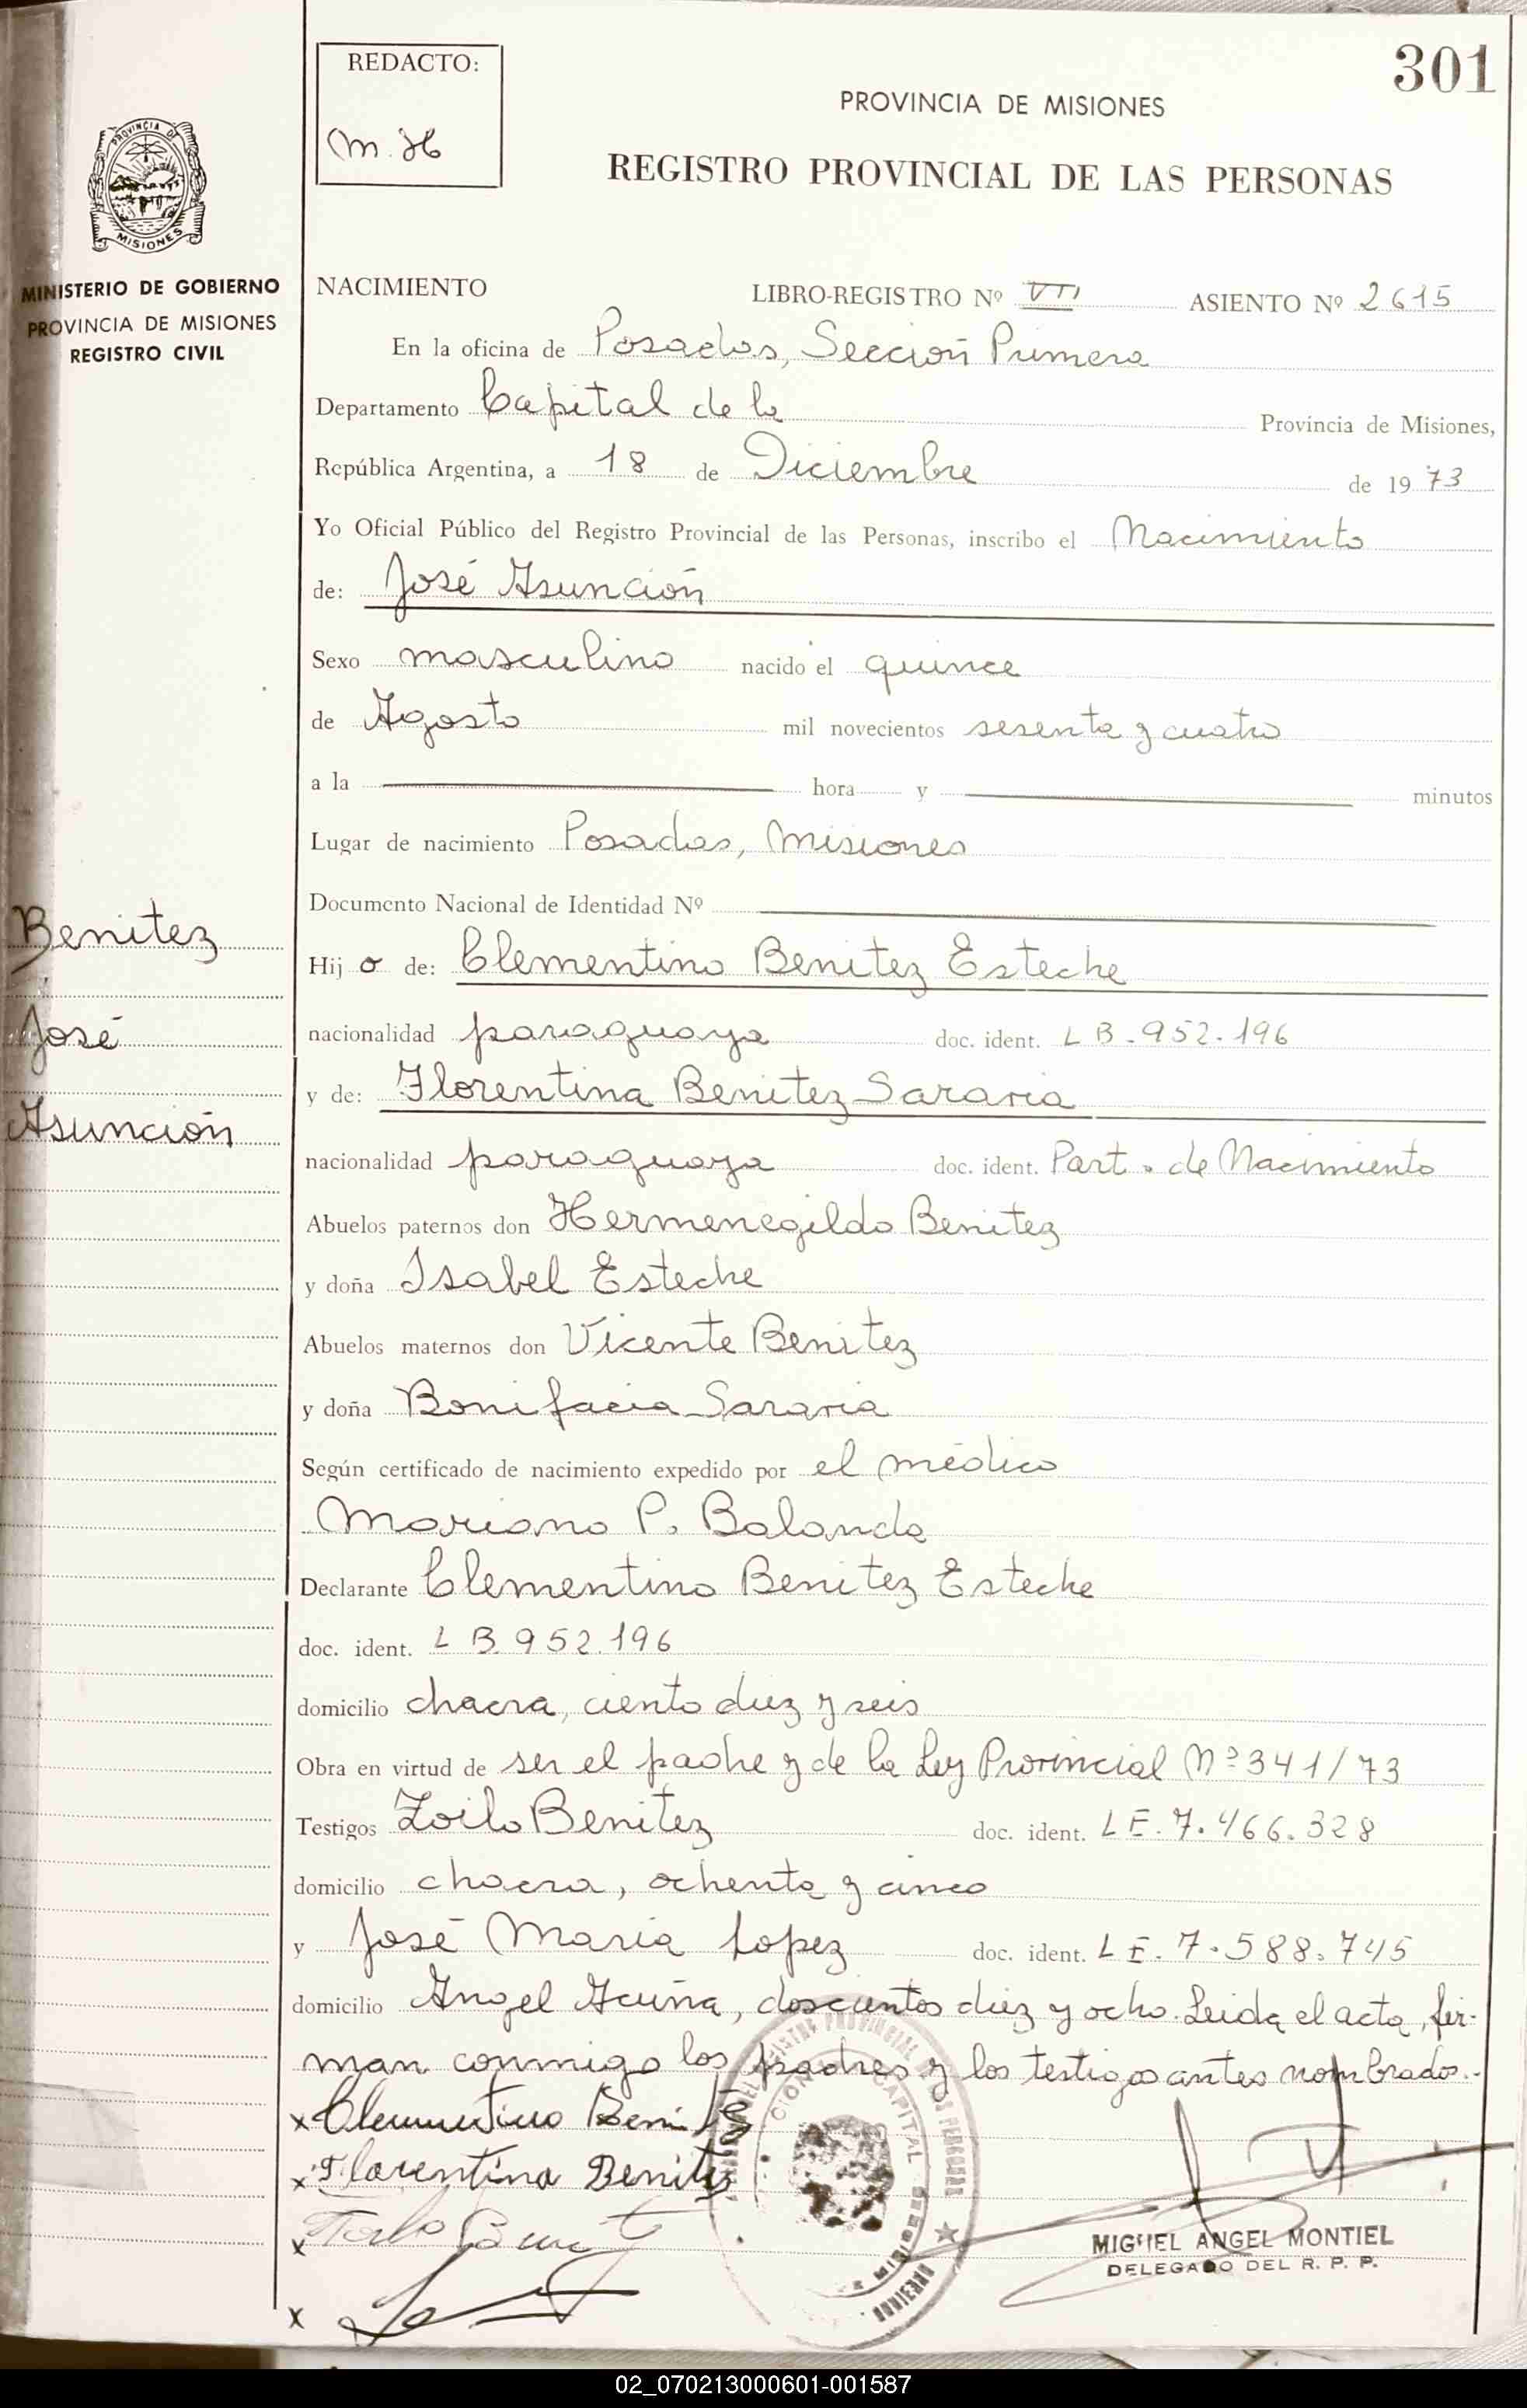 301
REDACTO:
M.H
PROVINCIA DE MISIONES
REGISTRO PROVINCIAL DE LAS PERSONAS
PROVINCIA DE
MISIONES
MINISTERIO DE GOBIERNO
PROVINCIA DE MISIONES
REGISTRO CIVIL
NACIMIENTO LIBRO-REGISTRO Nº VII ASIENTO Nº 2615
En la oficina de Posadas, Sección Primera
Departamento Capital de la Provincia de Misiones,
República Argentina, a 18 de Diciembre de 1973
Yo Oficial Público del Registro Provincial de las Personas, inscribo el Nacimiento
de: José Asunción
Sexo masculino nacido el quince
de Agosto mil novecientos sesenta y cuatro
a la hora y minutos
Lugar de nacimiento Posadas, Misiones
Documento Nacional de Identidad Nº
Benitez
José
Asunción
Hijo de: Clementino Benitez Esteche
nacionalidad paraguaya doc. ident. L B. 952.196
y de: Florentina Benitez Sararia
nacionalidad paraguaya doc. ident. Part. de Nacimiento
Abuelos paternos don Hermenegildo Benitez
y doña Isabel Esteche
Abuelos maternos don Vicente Benitez
y doña Bonifacia Sararia
Según certificado de nacimiento expedido por el médico
Mariano P. Balanda
Declarante Clementino Benitez Esteche
doc. ident. L B 952.196
domicilio chacra, ciento diez y seis
Obra en virtud de ser el padre y de la Ley Provincial Nº 341/73
Testigos Zoilo Benitez doc. ident. L E. 7.466.328
domicilio chacra, ochenta y cinco
y José Maria Lopez doc. ident. L E. 7.588.745
domicilio Angel Acuña, doscientos diez y ocho. Leida el acta, fir-
man conmigo los padres y los testigos antes nombrados.-
x Clementino Benitez
x Florentina Benitez
x
x
MIGUEL ANGEL MONTIEL
DELEGADO DEL R. P. P.
02_070213000601-001587